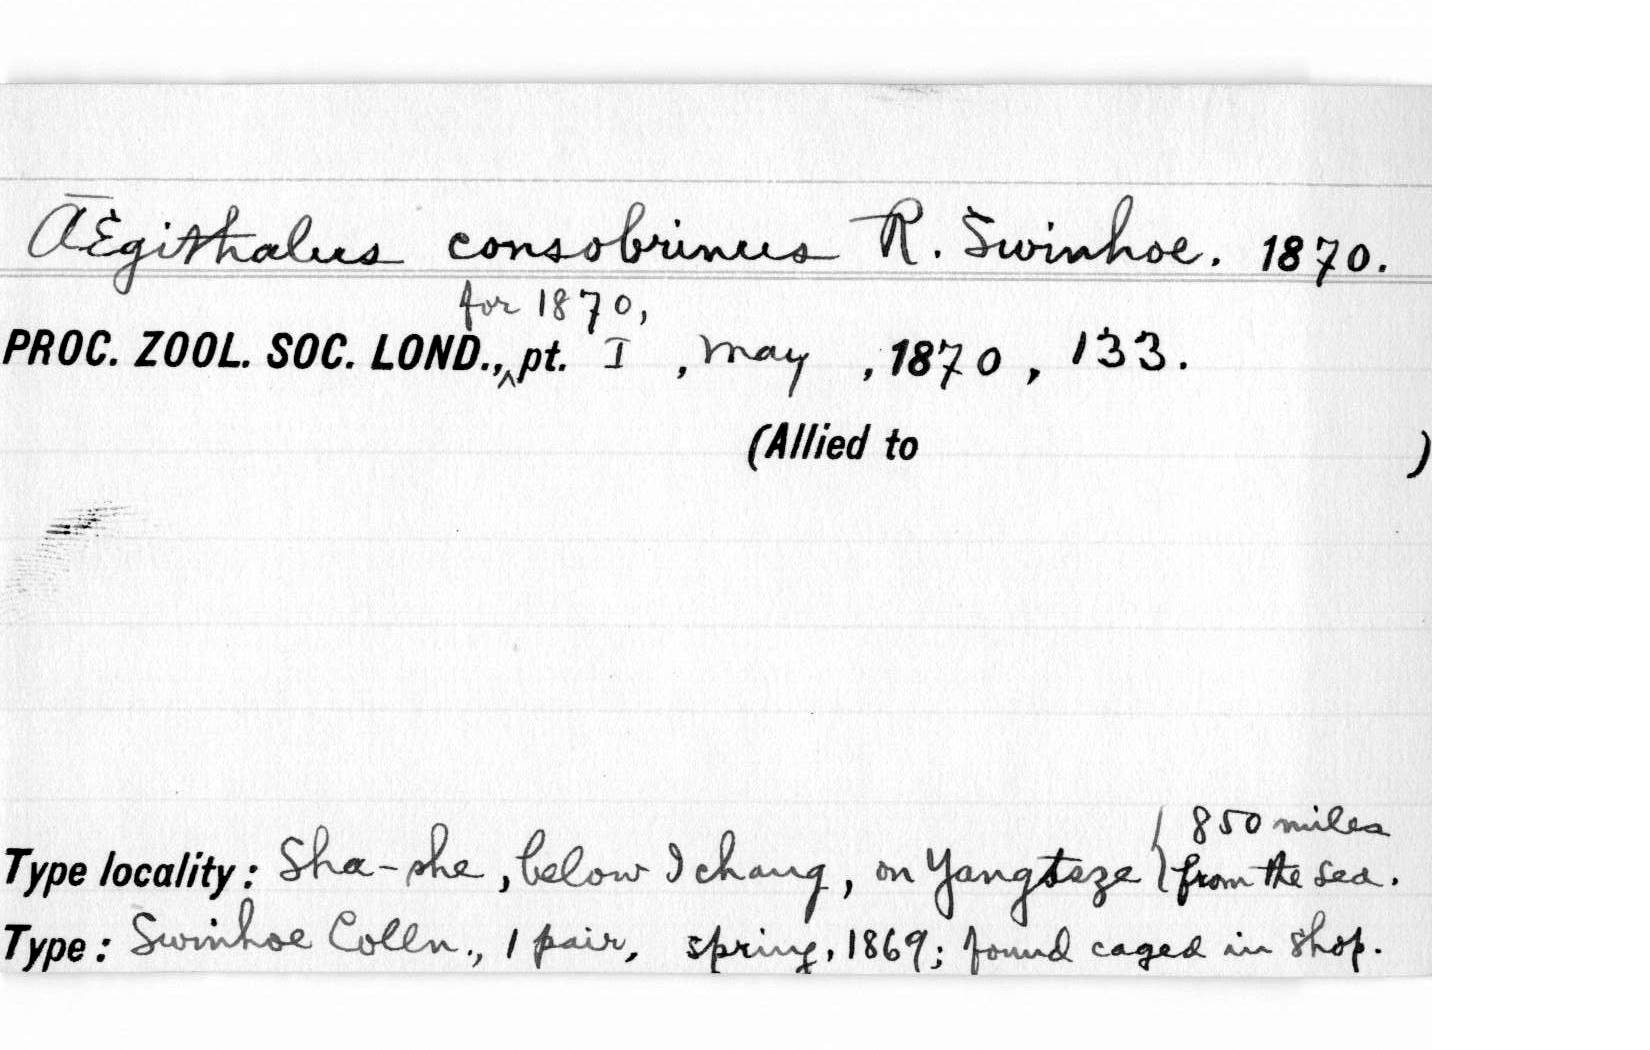 Ægithalus consobrinus R. Swinhoe. 1870.
for 1870,
PROC. ZOOL. SOC. LOND.,^ pt. I , May , 1870 , 133.
(Allied to )
850 miles
Type locality: Sha-she, below Ichang, on Yangtsze { from the sea.
Type: Swinhoe Colln., 1 pair, spring, 1869; found caged in shop.